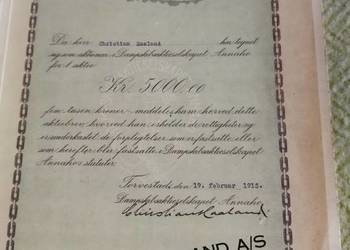 Da herr Christian Haaland har tegnet
sig som aktionær i Dampskibsaktieselskapet Annaho
for 1 aktie
Kr. 5000,00
fem tusen kroner meddeles ham herved dette
aktiebrev hvorved han tilsholder de rettigheter og
er underkastet de forpligtelser som er fastsatte eller
som herefter blir fastsatte i Dampskibsaktieselskapet
Annaho's statuter.
Torvestad, den 19. februar 1915.
Dampskibsaktieselskapet Annaho.
Christian Haaland.
AND A/S